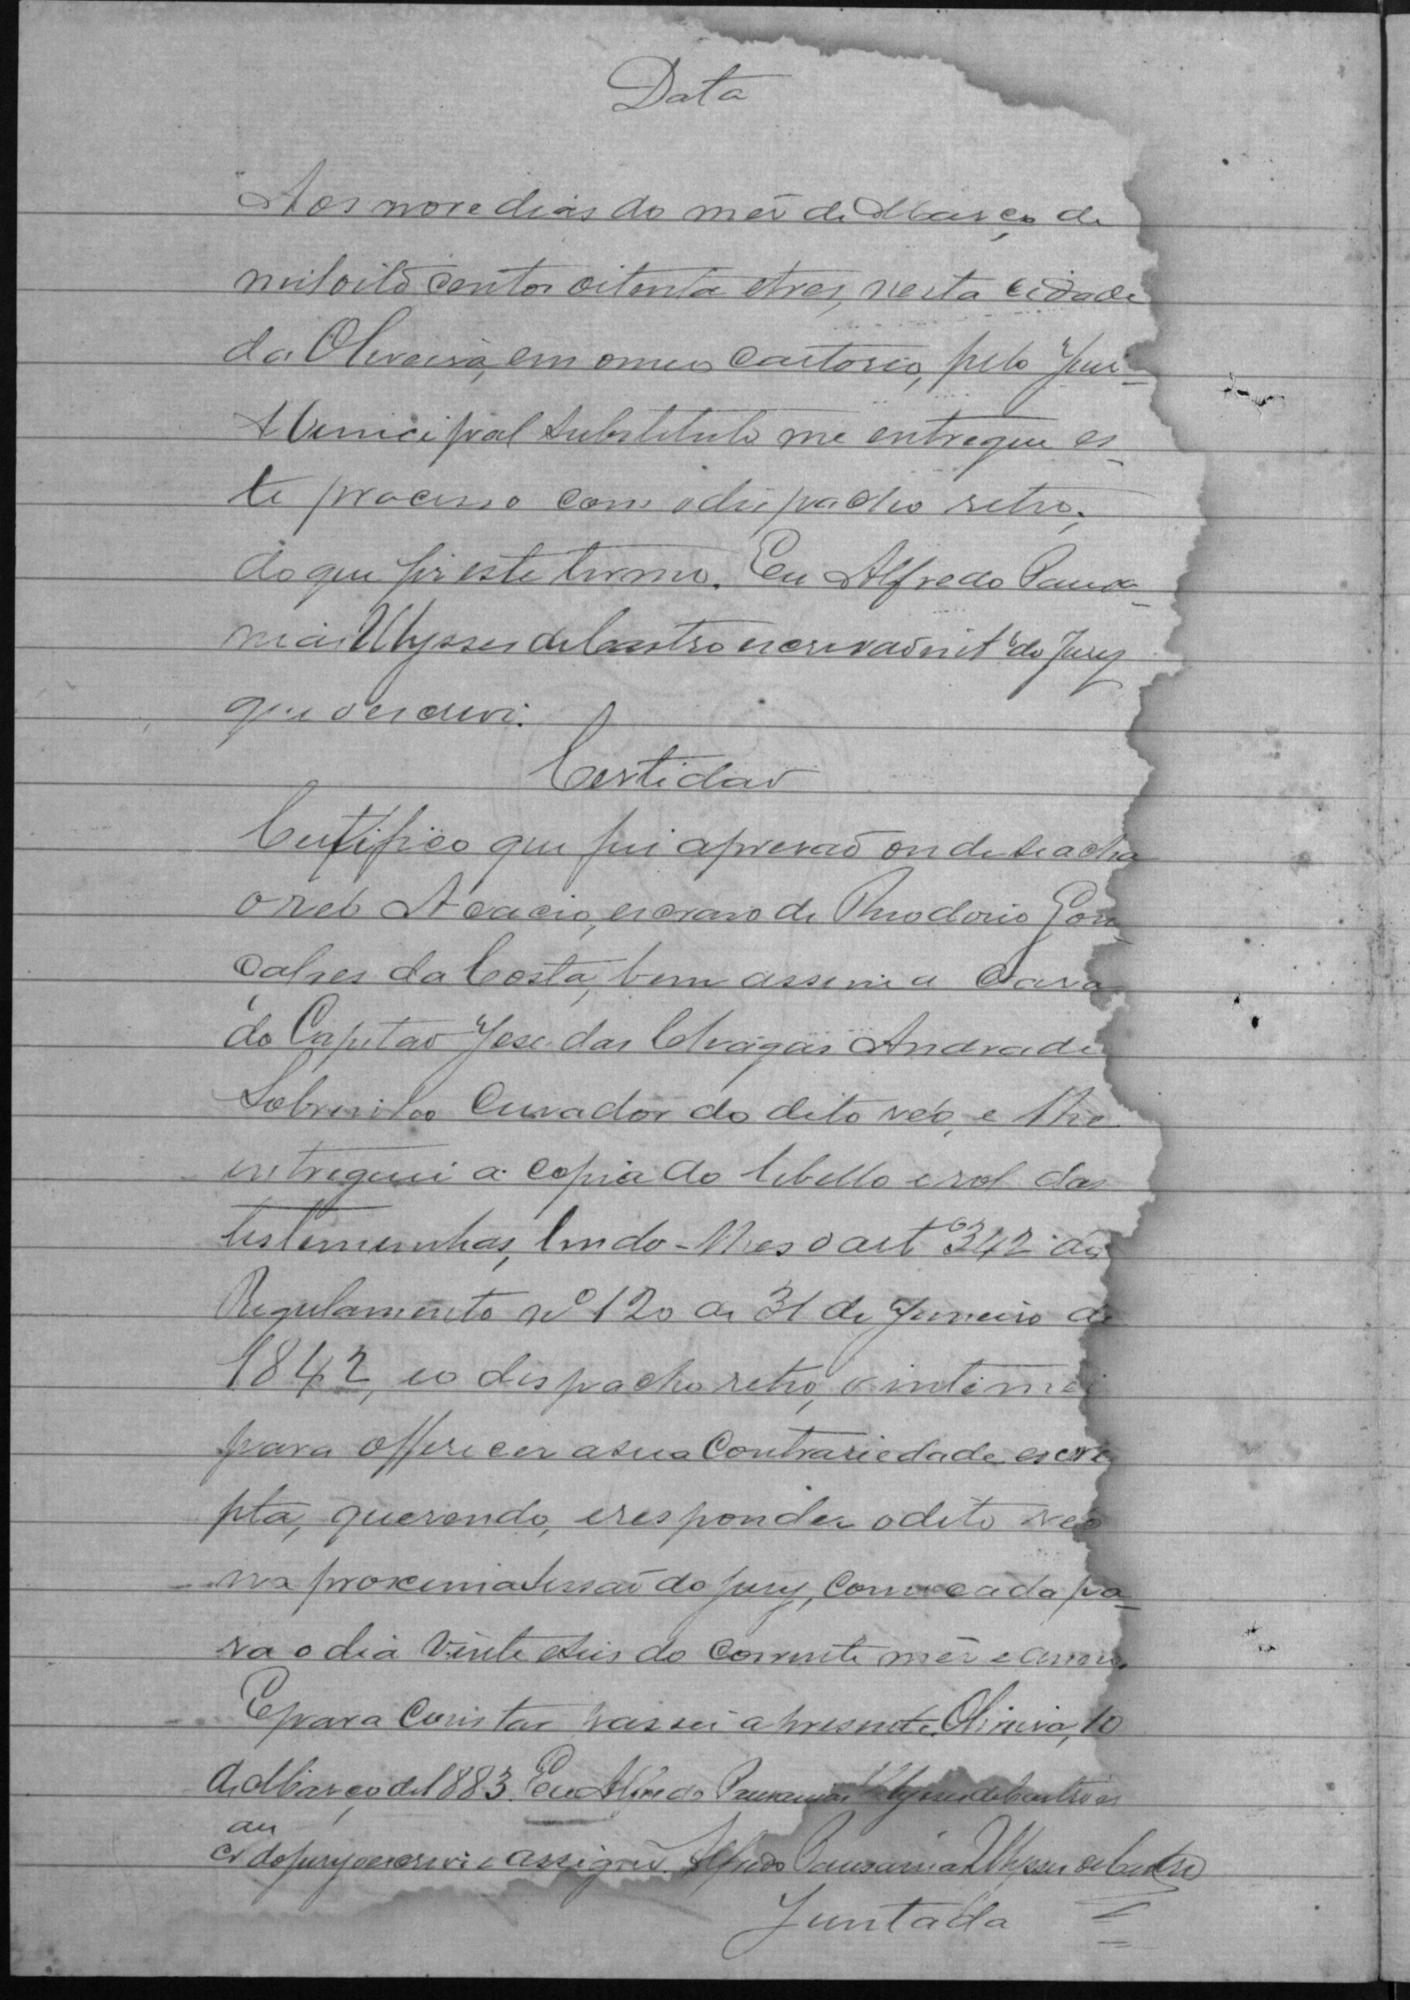 Data
Aos nove dias do mês de Março de
mil oito centos oitenta e tres, nesta cidade
da Oliveira, em o meu cartorio, pelo Jui-
Municipal Substituto me entregue es-
te processo com o dispacho retro;
do que fis este termo. Eu Alfredo Pausa-
nias Ulysses de Castro escrivaõ int.º do Jury
que o escrevi.
Certidaõ
Certifico que fui a prezaõ onde se acha
o reó Acacio, escravo de Theodorio Gon-
çalves da Costa, bem assim a casa
do Capitaõ José das Chagas Andrade
Sobrinho Curador do dito reó, e lhe
entreguei a copia do libello e rol das
testemunhas, lendo-lhes o art 342 do
Regulamento nº 120 de 31 de Janeiro de
1842, e o dispacho retro, o intimei
para offerecer a sua Contrariedade escri
pta, querendo, e responder o dito reó
na proxima Sessaõ do Jury, convocada pa-
ra o dia Vinte e seis do corrente mês e anno.
E para constar passei a presente. Oliveira, 10
de Março de 1883. Eu Alfredo Pausanias Ulysses de Castro es
cr do Jury o escrevi e assigno. Alfredo Pausanias Ulysses de Castro
Juntada